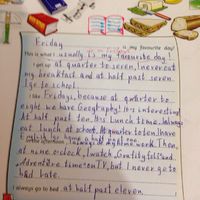 Friday is my favourite day!
This is what I usually Is my favourite day!
I get up at quarter to seven, I never eat
my breakfast and at half past seven
I go to school.
I like Fridays, because at quarter to
eight we have Geography! It's interesting
At half past ten its Lunch time. I always
eat Lunch at school. At quarter to ten I have
In the afternoon, I always do my Homework. Then,
at nine o'clock, I watch, Gratityfalls and
Adventure time on TV, but I never go to
bed late.
I always go to bed at half past eleven.